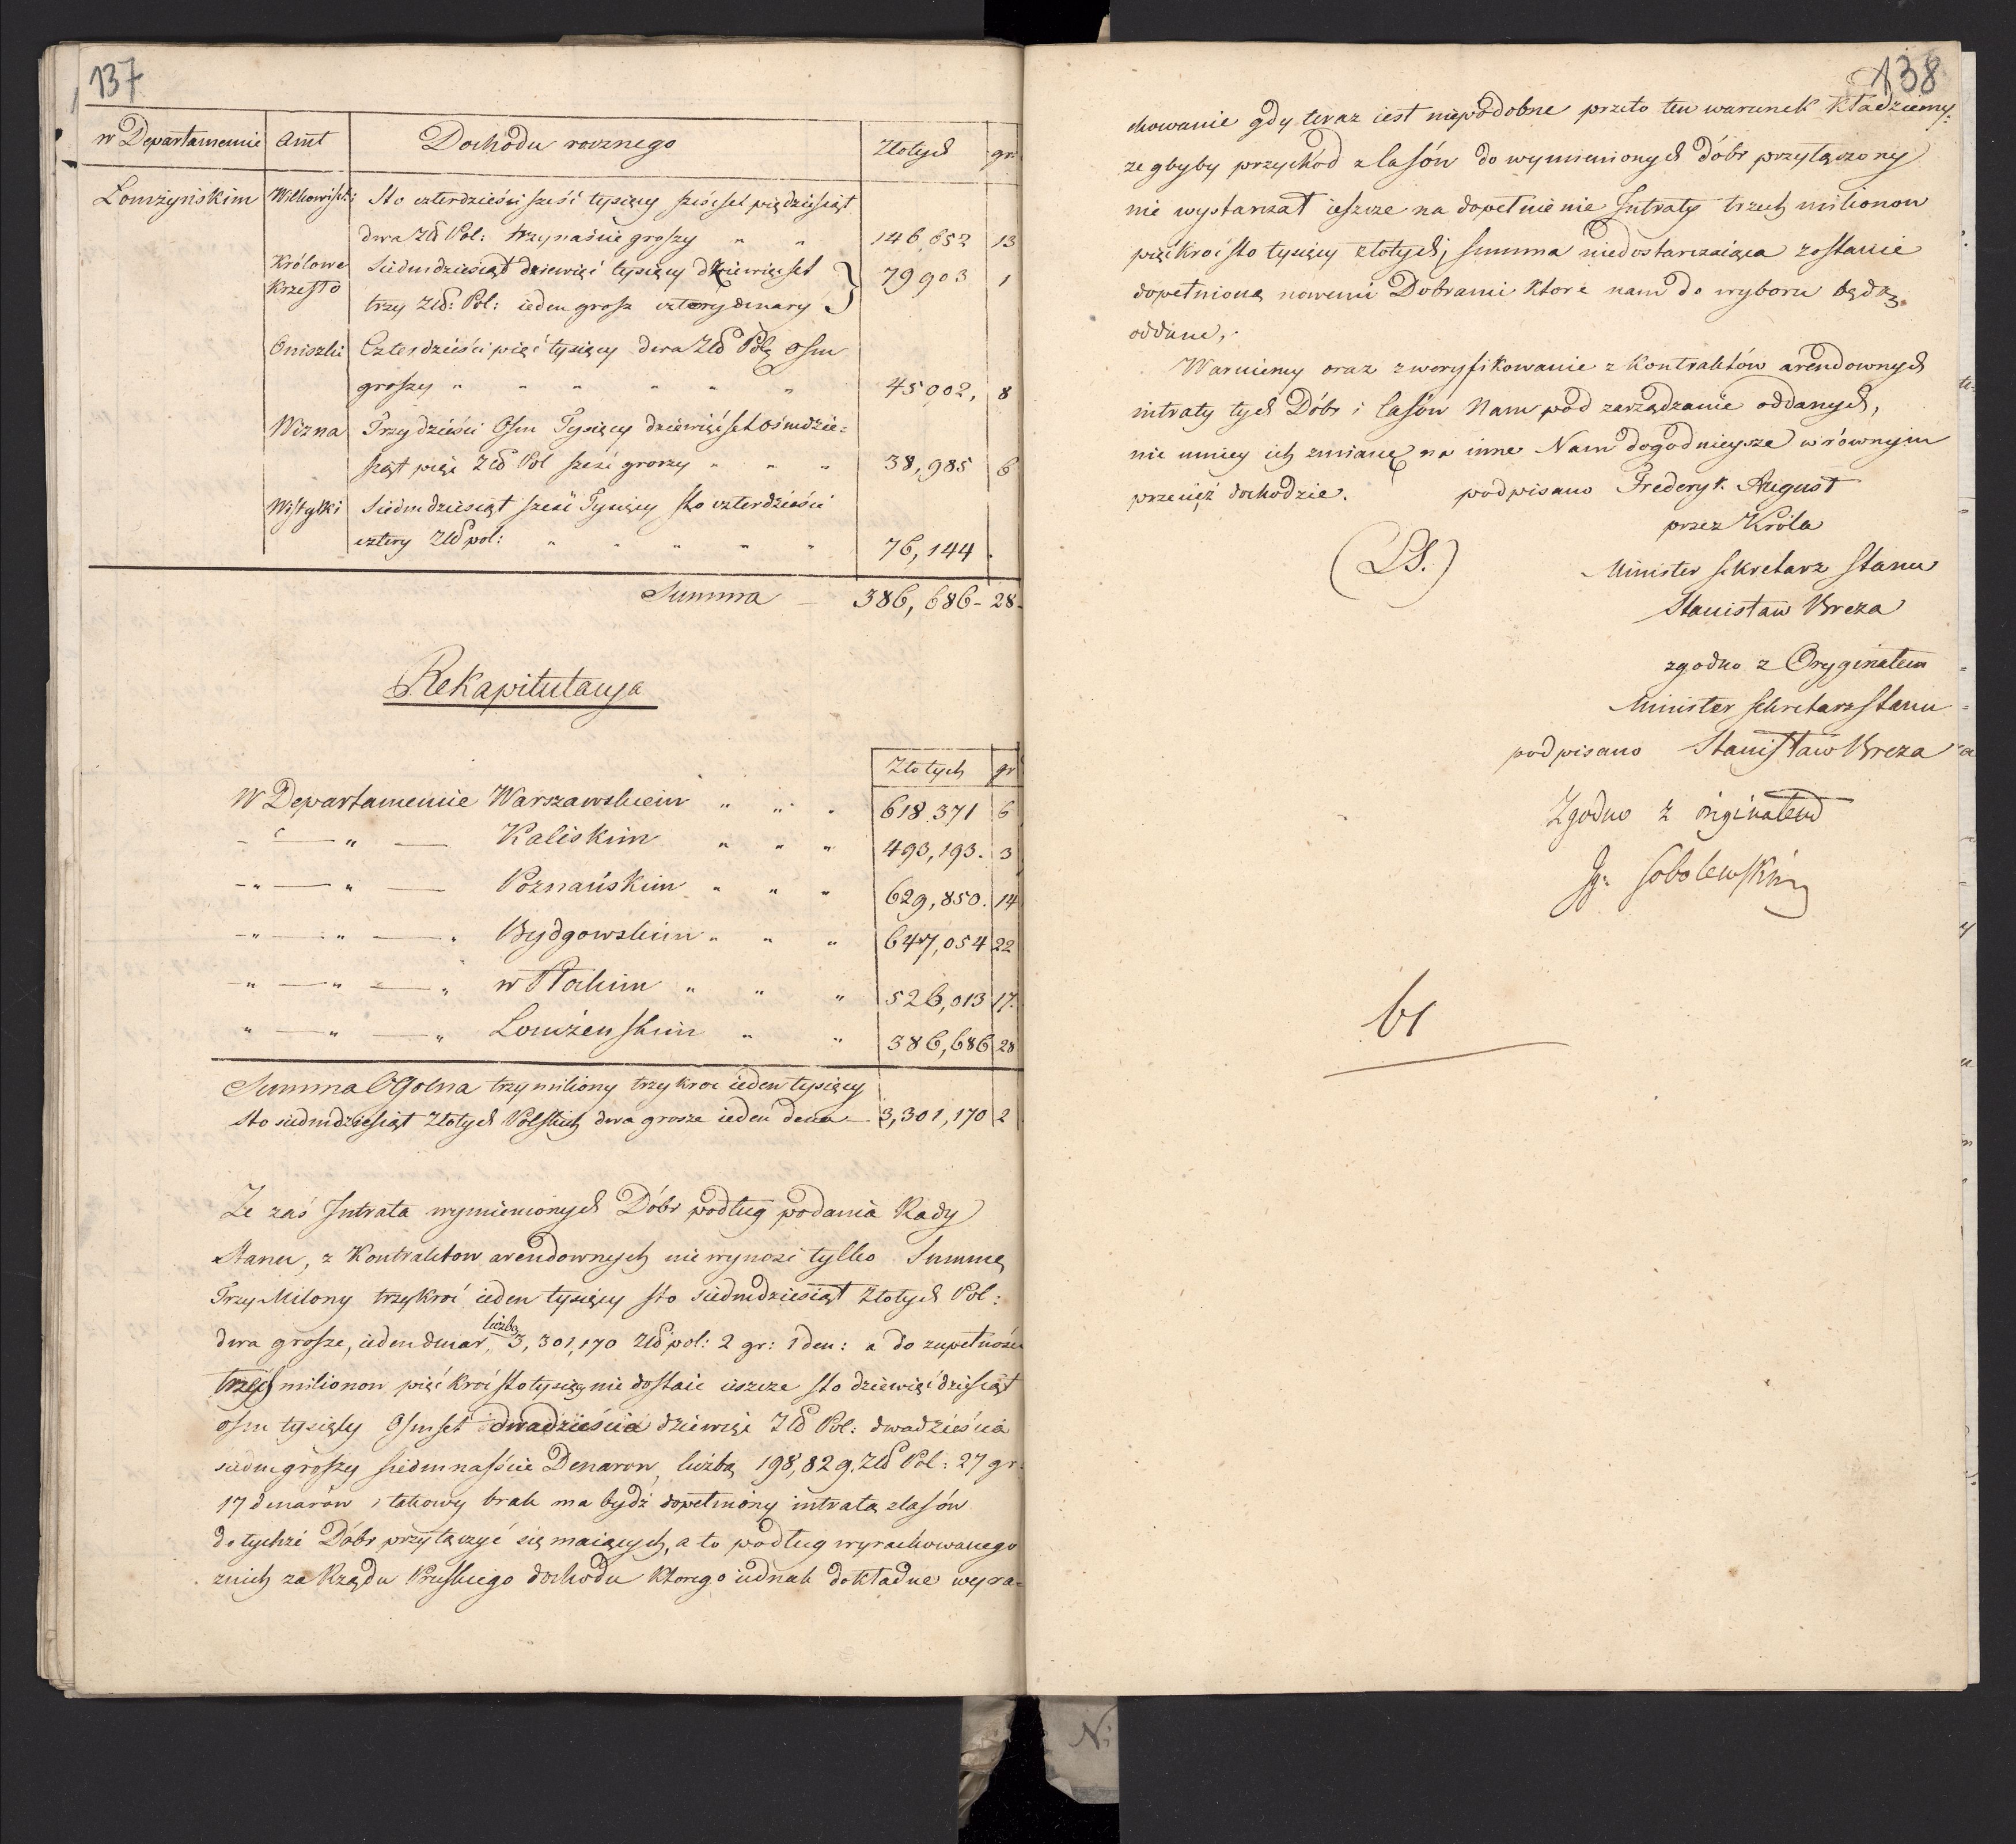 137
w Departamencie Amt Dochodu rocznego Złotych gr:
Łomżyńskim Wilkowiski Sto czterdzieści sześć tysięcy sześćset pięćdziesiąt
dwa Złl Pol: trzynaście groszy " " 146,652 13
Królowe Siedmdziesiąt dziewięć tysięcy dziewięćset 79903 1
Krzesło trzy Złl: Pol: ieden grosz cztery denary
Oniszki Czterdzieści pięć tysięcy dwa Złl Pol: Osm
groszy " " " " " " 45002, 8
Wizna Trzydzieści Osm Tysięcy dziewięćset ośmdzie=
siąt pięć Złl Pol sześć groszy " " " 38,985 6
Wistytki Siedmdziesiąt sześć Tysięcy sto czterdzieści
cztery Złl pol: " " " " " 76,144 .
Summa — 386,686 - 28
Rekapitulacya
Złotych gr
W Departamencie Warszawskiem " " " 618.371 6
- " — " — Kaliskim " " " 493,193. 3
- " — " — Poznańskim " " " 629,850. 14
- " — " — " Bydgowskim " " " 647,054 22
- " — " — " w Płockim " " " 526,013 17.
" — " — " Łomżenskim " " 386,686 28
Summa Ogolna trzy miliony trzykroc ieden tysięcy
sto siedmdziesiąt Złotych Polskich dwa grosze ieden dena — 3,301,170 2
Ze zaś Intrata wymienionych Dóbr podług podania Rady
Stanu, z Kontraktow arendownych nie wynosi tylko Summę
Trzy Milony trzykroć ieden tysięcy sto siedmdziesiąt Złotych Pol:
dwa grosze, ieden denar, liczbą 3,301,170 Złl pol: 2 gr: 1 den: a do zupełności
trzech milionow pięćkroć sto tysięcy nie dostaie ieszcze sto dziewięćdziesiąt
osm tysięcy Osmset dwadzieścia dziewięć Złl Pol: dwadzieścia
siedm groszy siedmnaście Denarow, liczbą 198,829. Złl Pol: 27 gr:
17 denarów i takowy brak ma bydź dopełniony intratą z lasów
do tychże Dóbr przyłączyć się maiących, a to podług wyrachowanego
z nich za Rządu Pruskiego dochodu którego iednak dokładne wyra=
138
chowanie gdy teraz iest niepodobne przeto ten warunek kładziemy:
że gbyby przychód z lasów do wymienionych dóbr przyłączony
nie wystarczał ieszcze na dopełnienie Intraty trzech milionow
pięćkroć sto tysięcy złotych, summa niedostarczaiąca zostanie
dopełnioną nowemi Dobrami które nam do wyboru będą
oddane,
Waruiemy oraz zweryfikowanie z kontraktów arendownych
intraty tych Dóbr i lasów Nam pod zarządzanie oddanych,
nie mniey ich zmianę na inne Nam dogodnieysze w równym
przecięż dochodzie. podpisano Frederyk August
przez Króla
(LS.) Minister Sekretarz Stanu
Stanisław Breza
zgodno z Oryginałem
Minister Sekretarz Stanu
podpisano Stanisław Breza
Zgodno z originałem
Ig: Sobolewski
61
N: